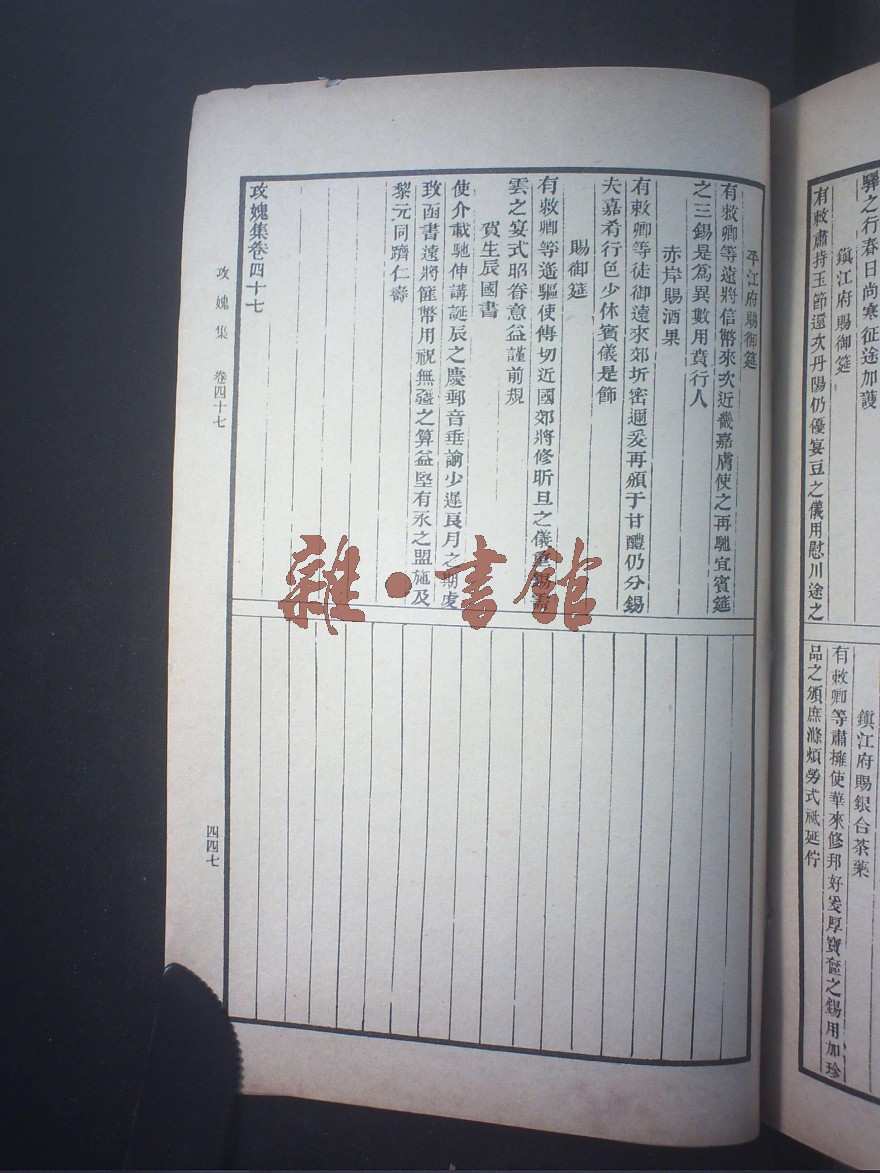 驛之行春日尚寒征途加護
鎭江府賜御筵
有敕肅持玉節還次丹陽仍優宴豆之儀用慰川途之
鎭江府賜銀合茶藥
有敕卿等肅擁使華來修邦好爰厚寶奩之錫用加珍
品之頒庶滌煩勞式祗延佇
平江府賜御筵
有敕卿等遠將信幣來次近畿嘉膚使之再馳宜賓筵
之三錫是爲異數用賁行人
赤岸賜酒果
有敕卿等徒御遠來郊圻密邇爰再頒于甘醴仍分錫
夫嘉肴行色少休賓儀是飾
賜御筵
有敕卿等遙驅使傳切近國郊將修昕旦之儀重錫需
雲之宴式昭眷意益謹前規
賀生辰國書
使介載馳伸講誕辰之慶郵音垂諭少遲良月之期虔
致函書遠將篚幣用祝無疆之算益堅有永之盟施及
黎元同躋仁壽
攻媿集卷四十七
攻媿集 卷四十七
四四七
雜·書館